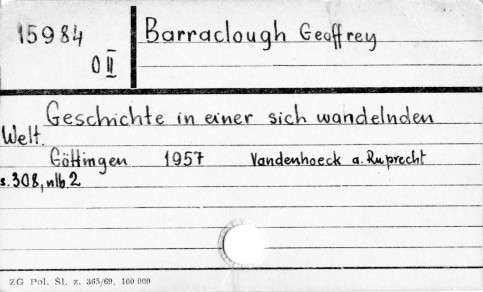 15984
O II
Barraclough Geoffrey
Geschichte in einer sich wandelnden
Welt.
Göttingen 1957 Vandenhoeck a. Ruprecht
s. 308, nlb. 2
ZG Pol. Śl. z. 365/69. 100 000